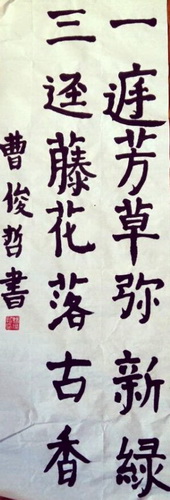 一庭芳草弥新緑
三迳藤花落古香
曹俊哲書